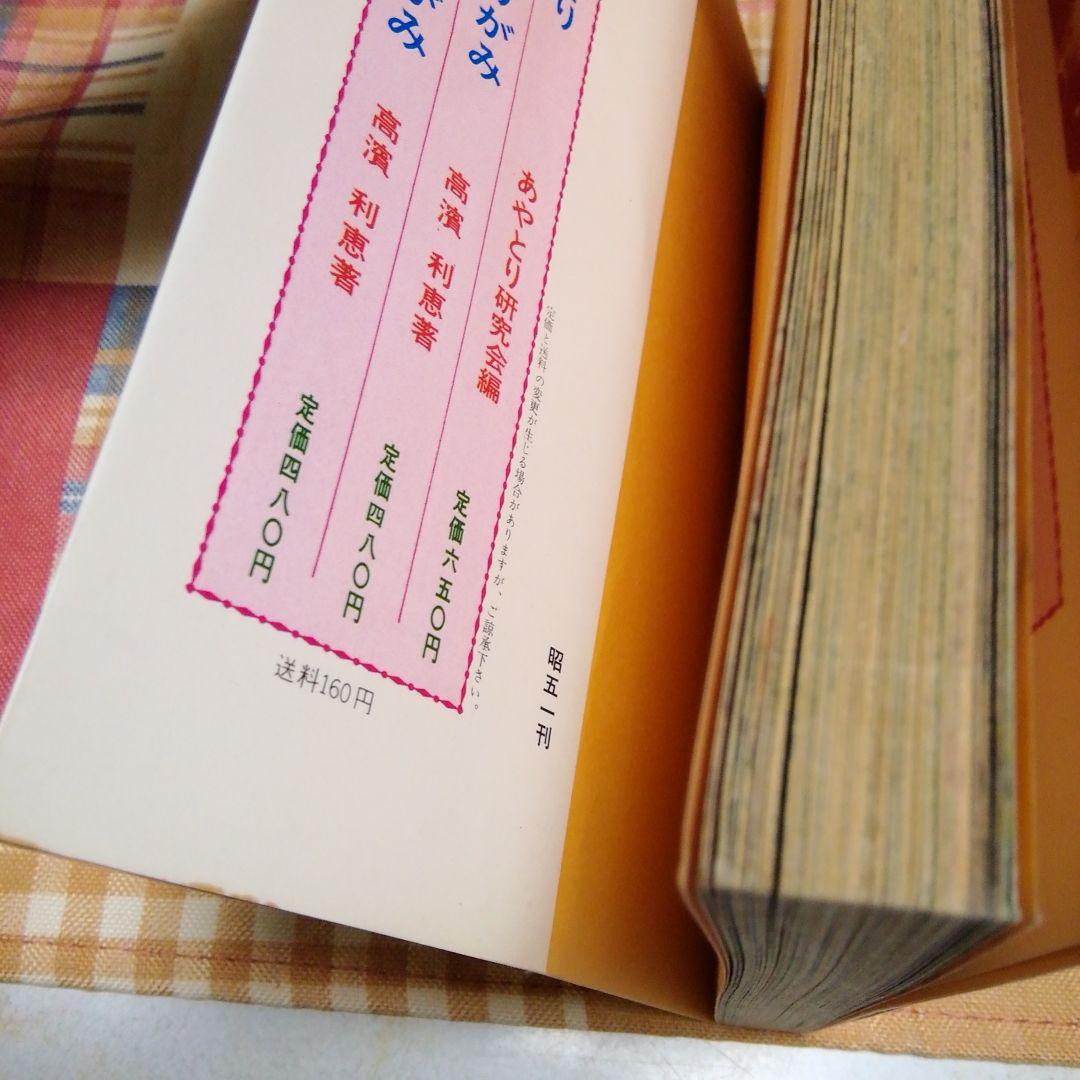 り
あやとり研究会編
定価六五〇円
がみ
高濱 利恵著
定価四八〇円
がみ
高濱 利恵著
定価四八〇円
定価と送料の変更が生じる場合がありますが、ご諒承下さい。
送料160円
昭五一刊